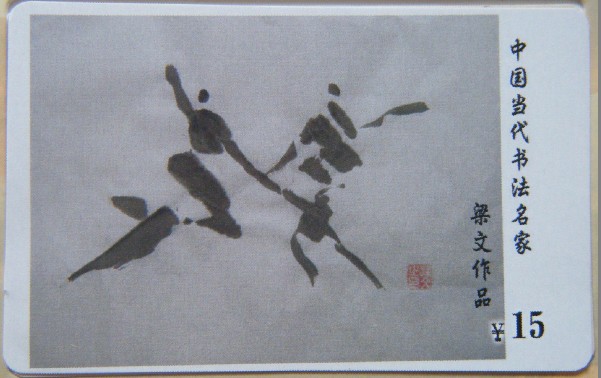 中国当代书法名家
梁文作品
¥15